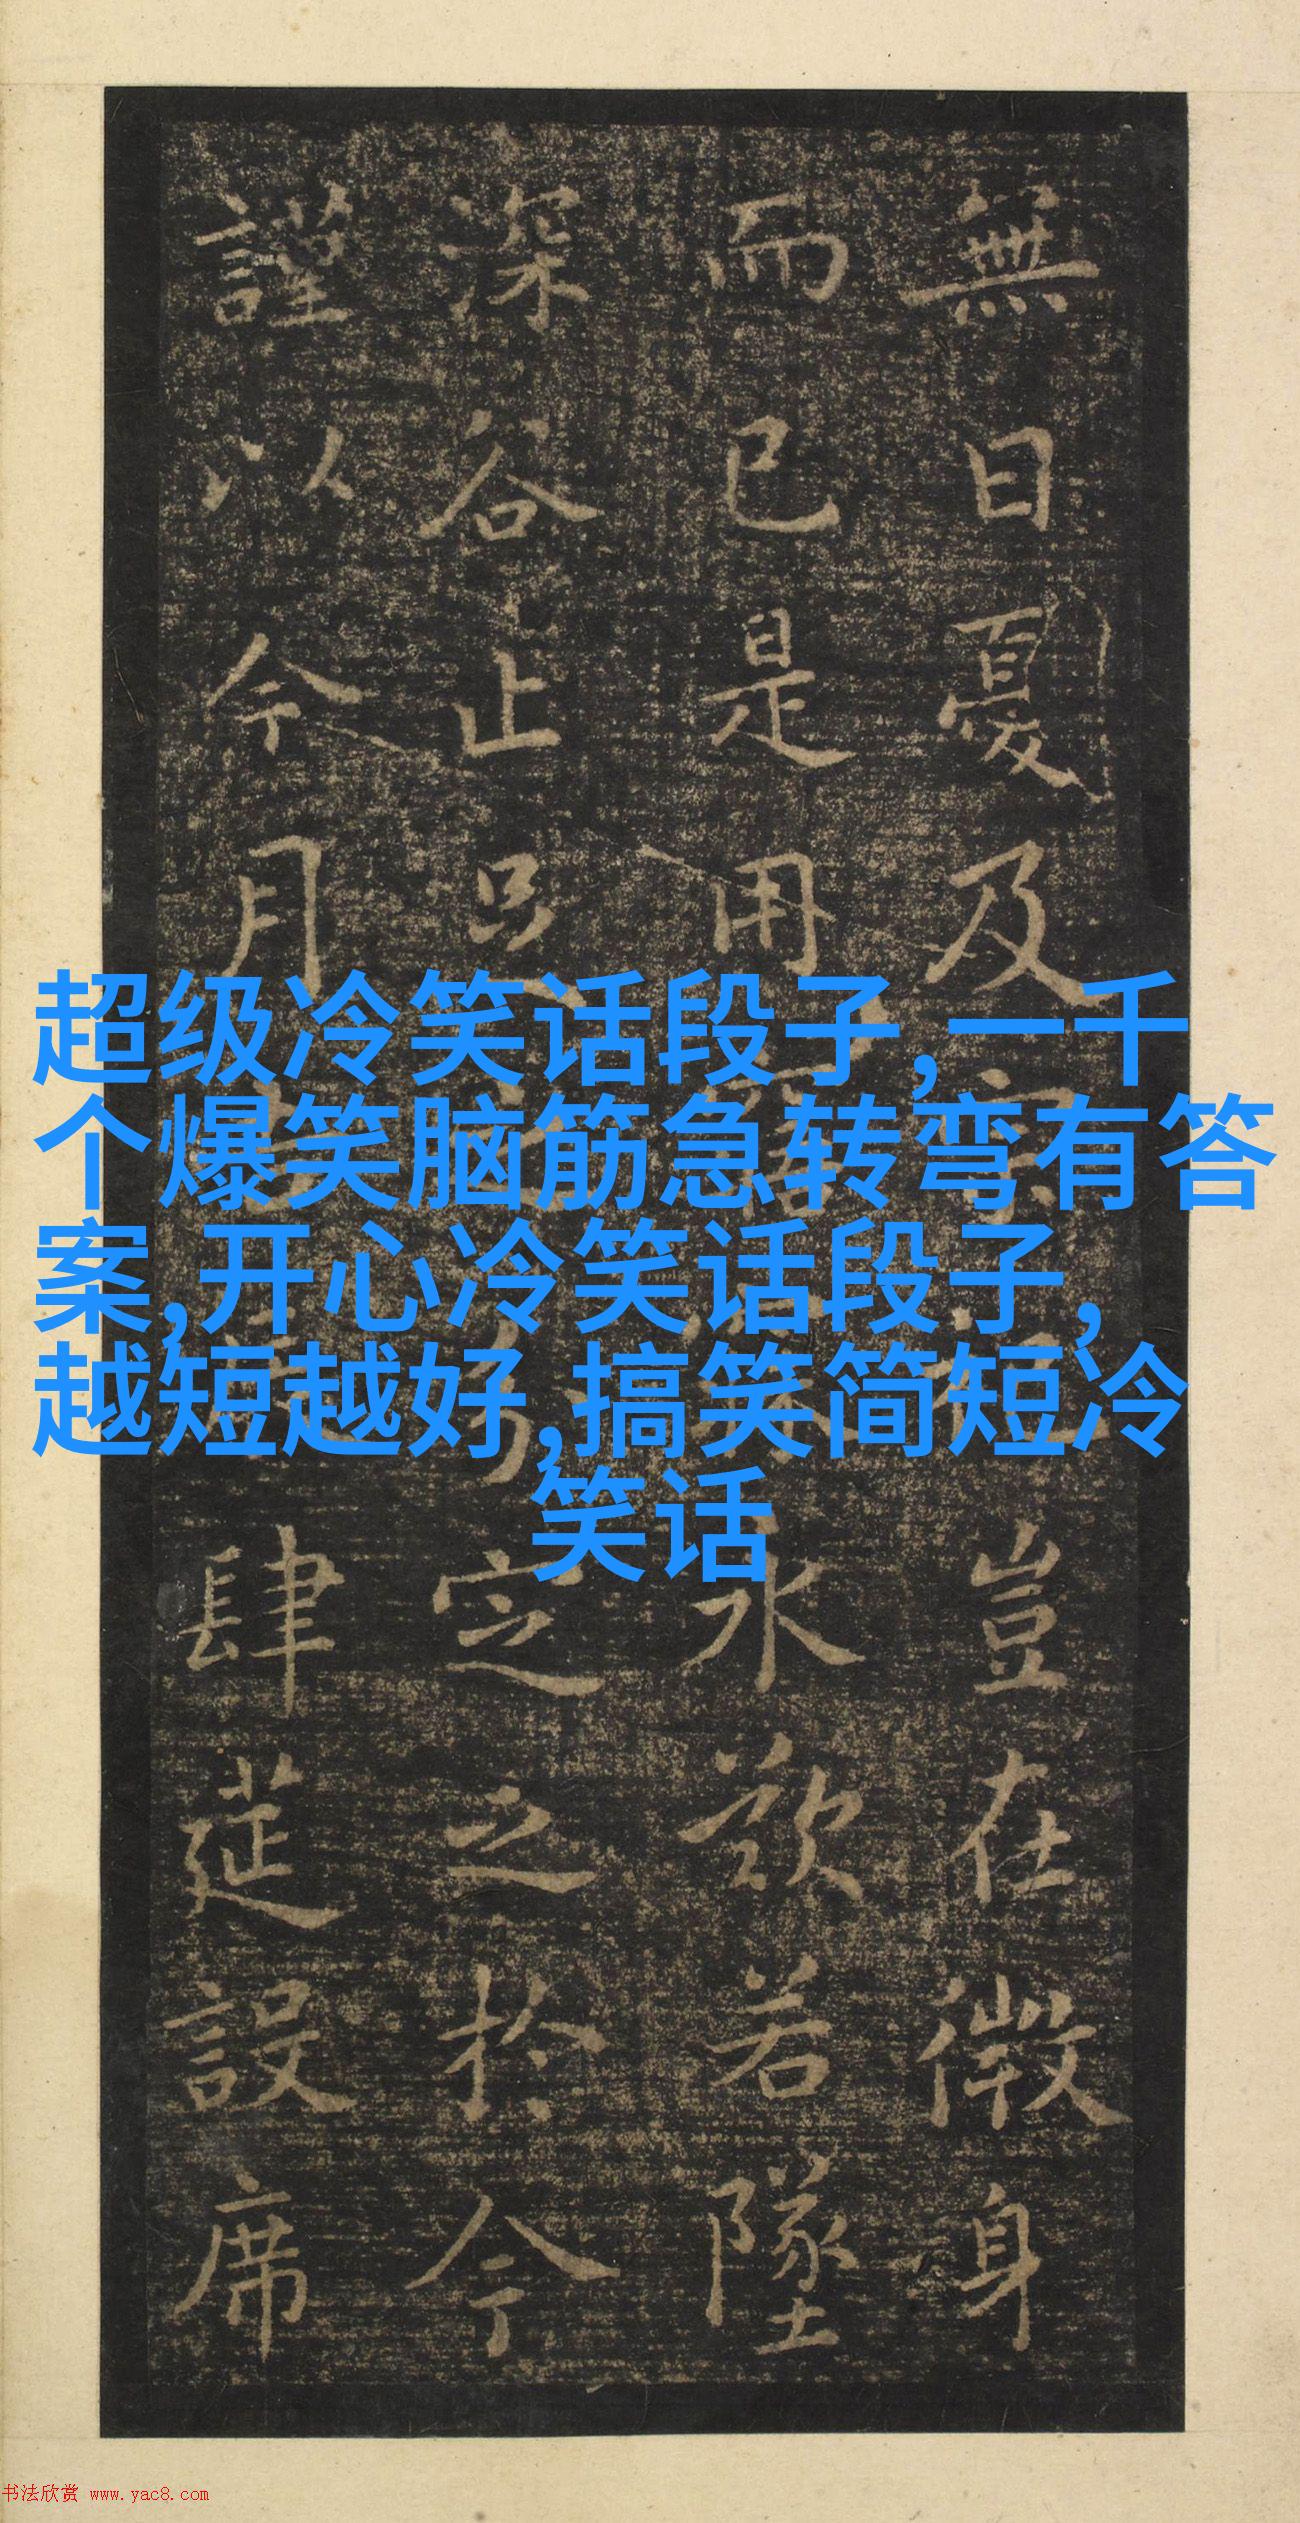 無目憂及
而已是用
深谷止
謹以今月
超级冷笑话段子,一千
个爆笑脑筋急转弯有答
案,开心冷笑话段子,
越短越好,搞笑简短冷
笑话
豈在微身
水欲若墜
定之於今
肆莚設席
书法欣赏 www.yac8.com